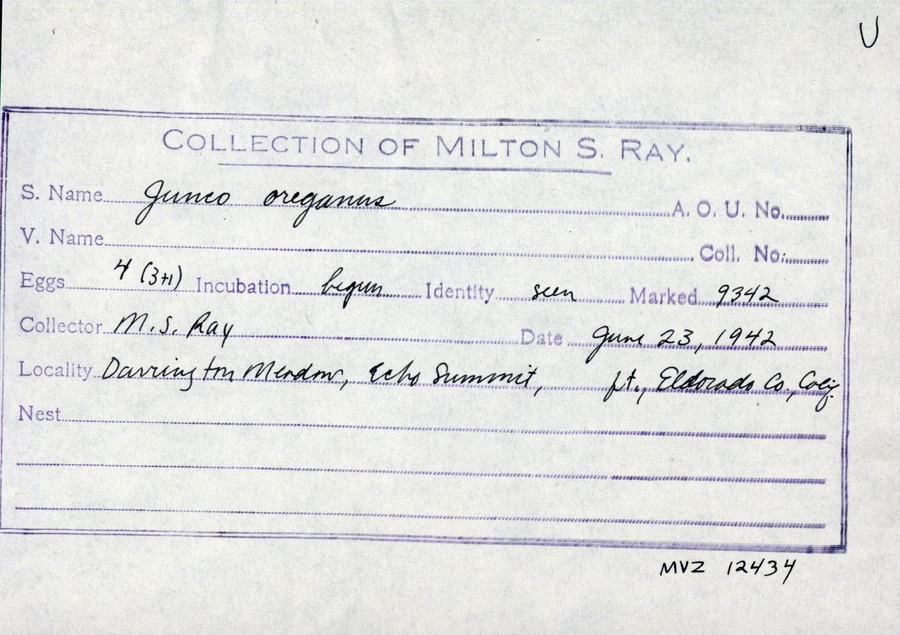 U
COLLECTION OF MILTON S. RAY.
S. Name Junco oreganus A. O. U. No.
V. Name Coll. No.
Eggs 4 (3+1) Incubation begun Identity seen Marked 9342
Collector M. S. Ray Date June 23, 1942
Locality Darrington Meadow, Echo Summit, ft., Eldorado Co., Calif.
Nest
MVZ 12434